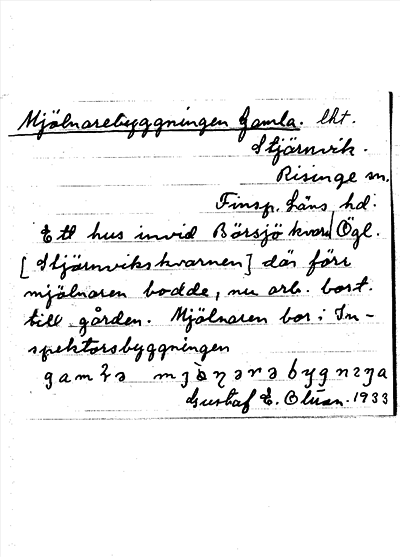 Mjölnarebyggningen Gamla. lht.
Stjärnvik.
Risinge sn.
Finsp. Läns hd.
Ett hus invid Börsjö kvarn Ögl.
[Stjärnvikskvarnen] där förr
mjölnaren bodde, nu arb. bost.
till gården. Mjölnaren bor i In-
spektorsbyggningen
Gustaf E. Olsson. 1933